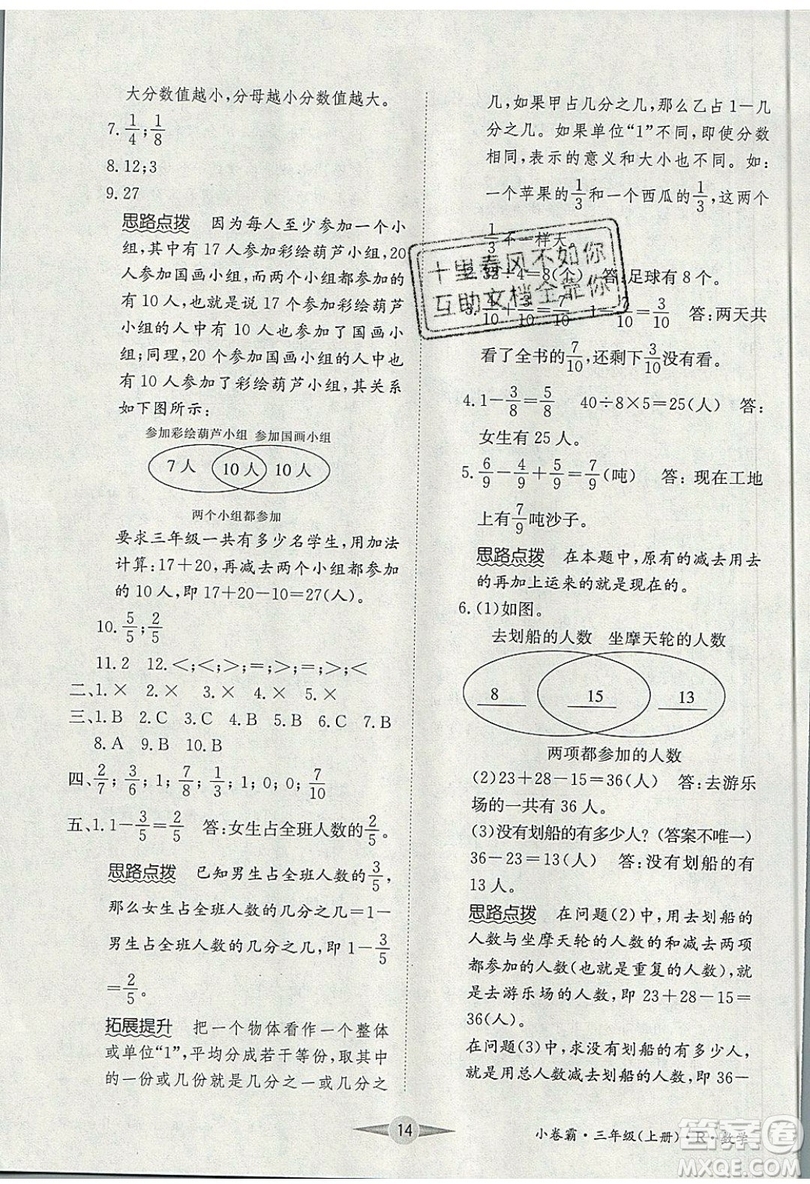 大分数值越小,分母越小分数值越大。
7. 1/4;1/8
8.12;3
9.27
思路点拨 因为每人至少参加一个小
组,其中有17人参加彩绘葫芦小组,20
人参加国画小组,也就是说彩绘葫芦
小组的人中有10人参加国画小组,还
有7人只参加彩绘葫芦小组,没参加国
画小组;同理,20个参加国画小组的人
有10人参加彩绘葫芦小组,其关系
如下图所示:
参加彩绘葫芦小组 参加国画小组
7人 10人 10人
两个小组都参加
要求三年级一共有多少名学生,用加法
计算:17+20,再减去两个小组都参加
的10人,即17+20-10=27(人)。
10. 5/5;2/5
11.2 12.<;<;=;>;=;>;<
二、1.× 2.× 3.× 4.× 5.×
三、1.B 2.C 3.A 4.B 5.C 6.C 7.B
8.A 9.B 10.B
四、2/7;3/6;1;3/8;1;0;0;7/10
五、1.1-3/5=2/5 答:女生占全班人数的2/5。
思路点拨 已知男生占全班人数的3/5,
那么女生占全班人数的几分之几=1-
男生占全班人数的几分之几,即1-3/5
=2/5。
拓展提升 把一个物体看作一个整体
或单位“1”,平均分成若干等份,取其中
的一份或几份就是几分之一或几分之
几,如果甲占几分之几,那么乙占1-几
分之几。如果单位“1”不同,即使分数
相同,表示的意义和大小也不同。如:
一个苹果的1/3和一个西瓜的1/3,这两个
1/3不一样大。
32÷4=8(个) 答:足球有8个。
十里春风不如你
互助文档全靠你
=7/10 1-7/10=3/10 答:两天共
看了全书的7/10,还剩3/10没有看。
4.1-3/8=5/8 40÷8×5=25(人) 答:
女生有25人。
5. 6/9-4/9+5/9=7/9(吨) 答:现在工地
上有7/9吨沙子。
思路点拨 在本题中,原有的减去用去
的再加上运来的就是现在的。
6.(1)如图。
去划船的人数 坐摩天轮的人数
8 15 13
两项都参加的人数
(2)23+28-15=36(人) 答:去游乐
场的一共有36人。
(3)没有划船的有多少人?(答案不唯一)
36-23=13(人) 答:没有划船的有
13人。
思路点拨 在问题(2)中,用去划船的
人数与坐摩天轮的人数的和减去两项
都参加的人数(也就是重复的人数),就
是去游乐场的人数,即23+28-15=36(人)。
在问题(3)中,求没有划船的有多少人,
就是用总人数减去划船的人数,即36-
14
小卷霸·三年级(上册)·R·数学
答案圈
MXQE.COM